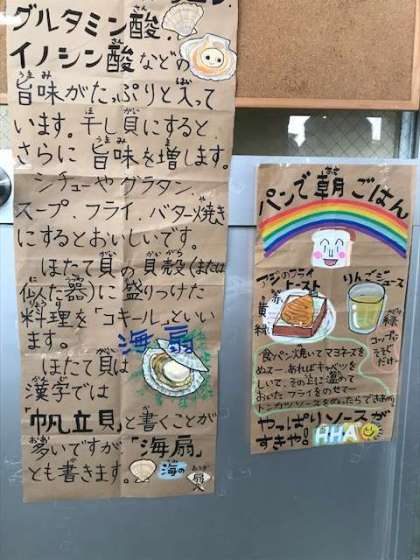 グルタミン酸、
イノシン酸などの
旨味がたっぷりと入って
います。干し貝にすると
さらに旨味を増します。
シチューやグラタン、
スープ、フライ、バター焼き
にするとおいしいです。
ほたて貝の貝殻(または
似た器)に盛りつけた
料理を「コキール」といい
ます。
海扇
ほたて貝は
漢字では
「帆立貝」と書くことが
多いですが、「海扇」
とも書きます。
海の扇
パンで朝ごはん
アジのフライ
トースト
りんごジュース
赤
黄
緑
緑
コップに
そそぐ
だけ
食パン焼いてマヨネーズを
ぬって、あればキャベツを
しいて、その上に温めて
おいたフライをのせて
トンカツソースをぬったらできあがり
やっぱりソースが
すきや!HHA